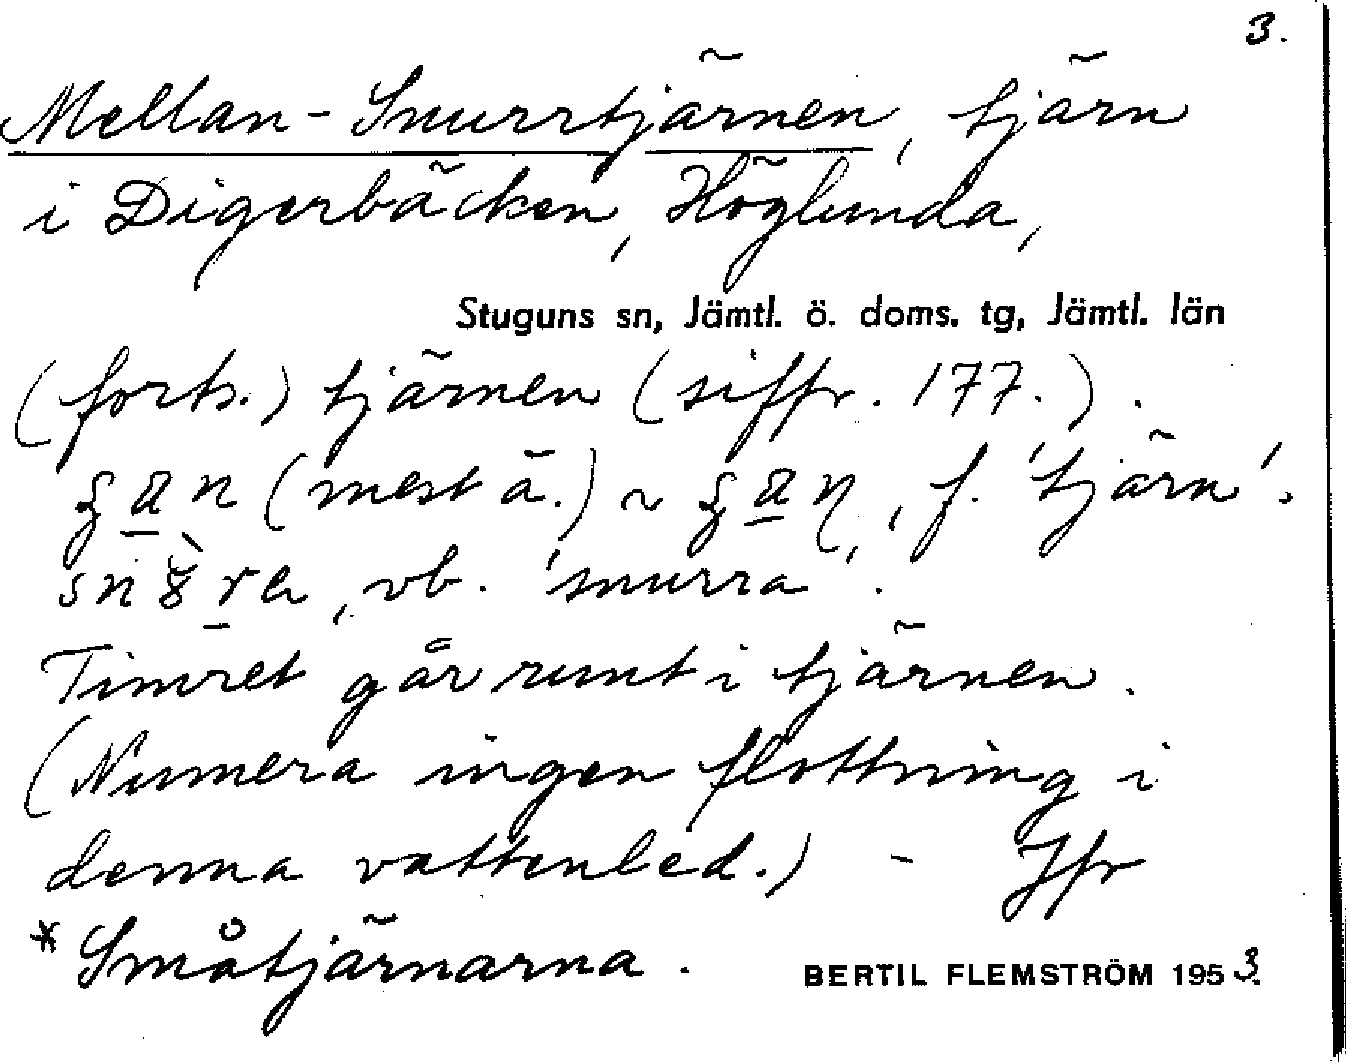 3.
Mellan-Snurrtjärnen, tjärn
i Digerbäcken, Höglunda,
Stuguns sn, Jämtl. ö. doms. tg, Jämtl. län
(forts.) tjärnen (siffr. 177.).
(mest ä.) ~ , f. 'tjärn'.
, vb. 'snurra'.
Timret går runt i tjärnen.
(Numera ingen flottning i
denna vattenled.) - Jfr
*Småtjärnarna.
BERTIL FLEMSTRÖM 1953.